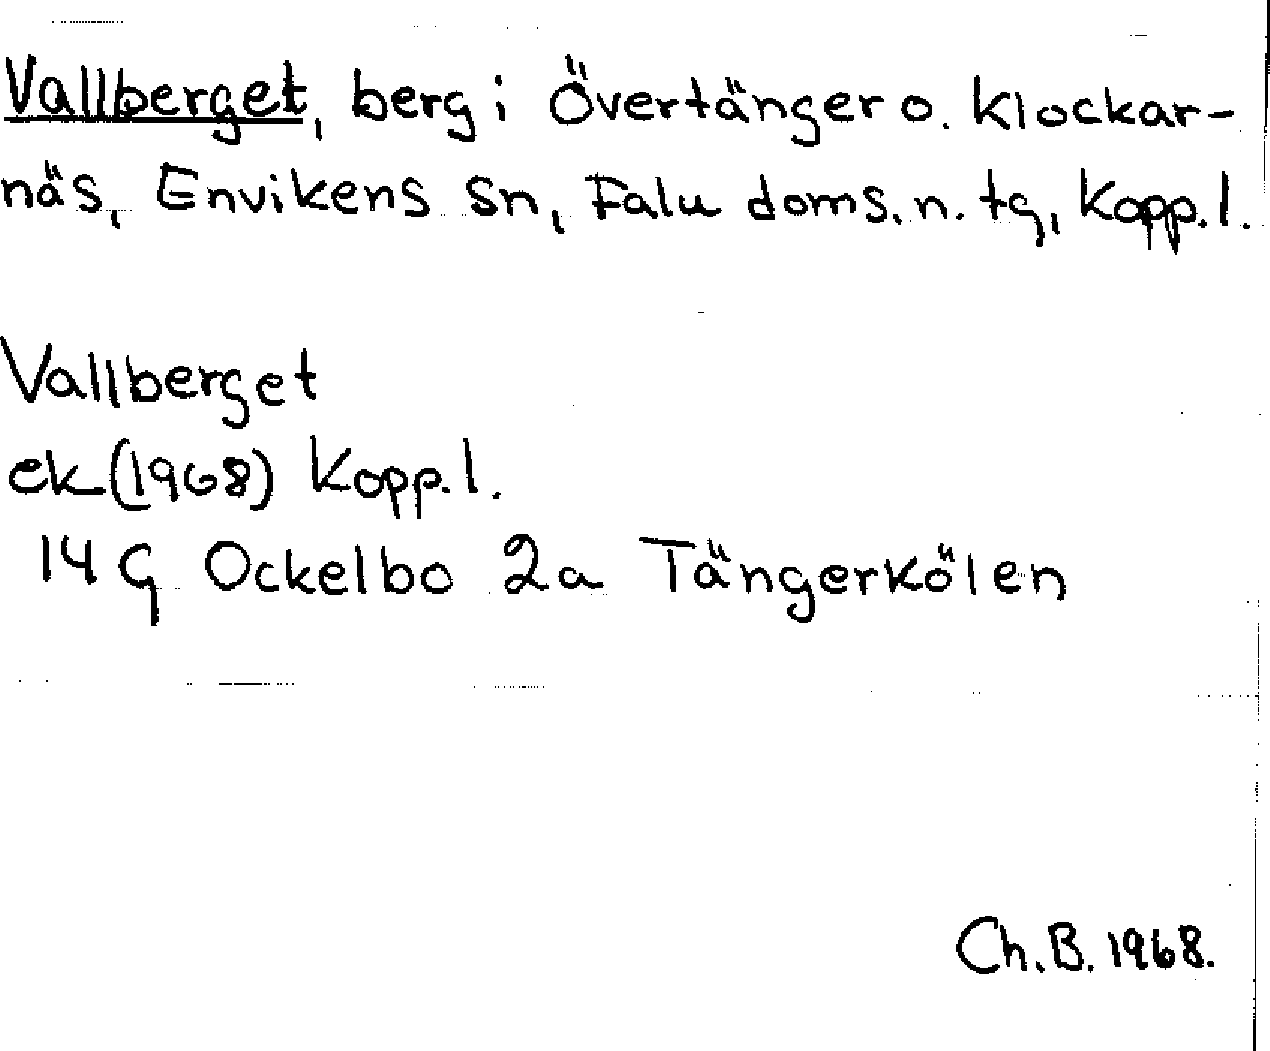 Vallberget, berg i Övertänger o. Klockar-
näs, Envikens sn, Falu doms. n. tg, Kopp. l.
Vallberget
ek (1968) Kopp. l.
14 G Ockelbo 2a Tängerkölen
Ch. B. 1968.